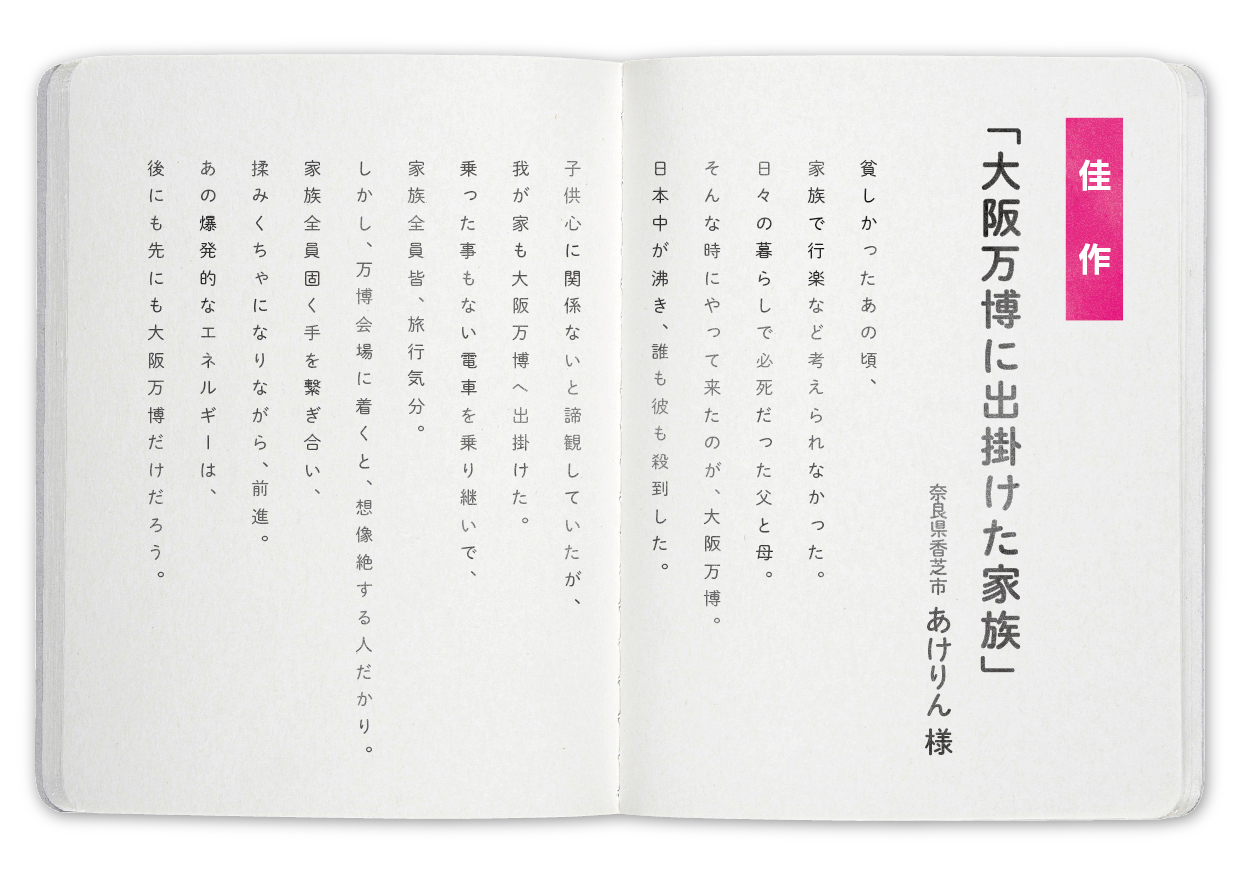 佳作
「大阪万博に出掛けた家族」
奈良県香芝市 あけりん 様
貧しかったあの頃、
家族で行楽など考えられなかった。
日々の暮らしで必死だった父と母。
そんな時にやって来たのが、大阪万博。
日本中が沸き、誰も彼も殺到した。
子供心に関係ないと諦観していたが、
我が家も大阪万博へ出掛けた。
乗った事もない電車を乗り継いで、
家族全員皆、旅行気分。
しかし、万博会場に着くと、想像絶する人だかり。
家族全員固く手を繋ぎ合い、
揉みくちゃになりながら、前進。
あの爆発的なエネルギーは、
後にも先にも大阪万博だけだろう。